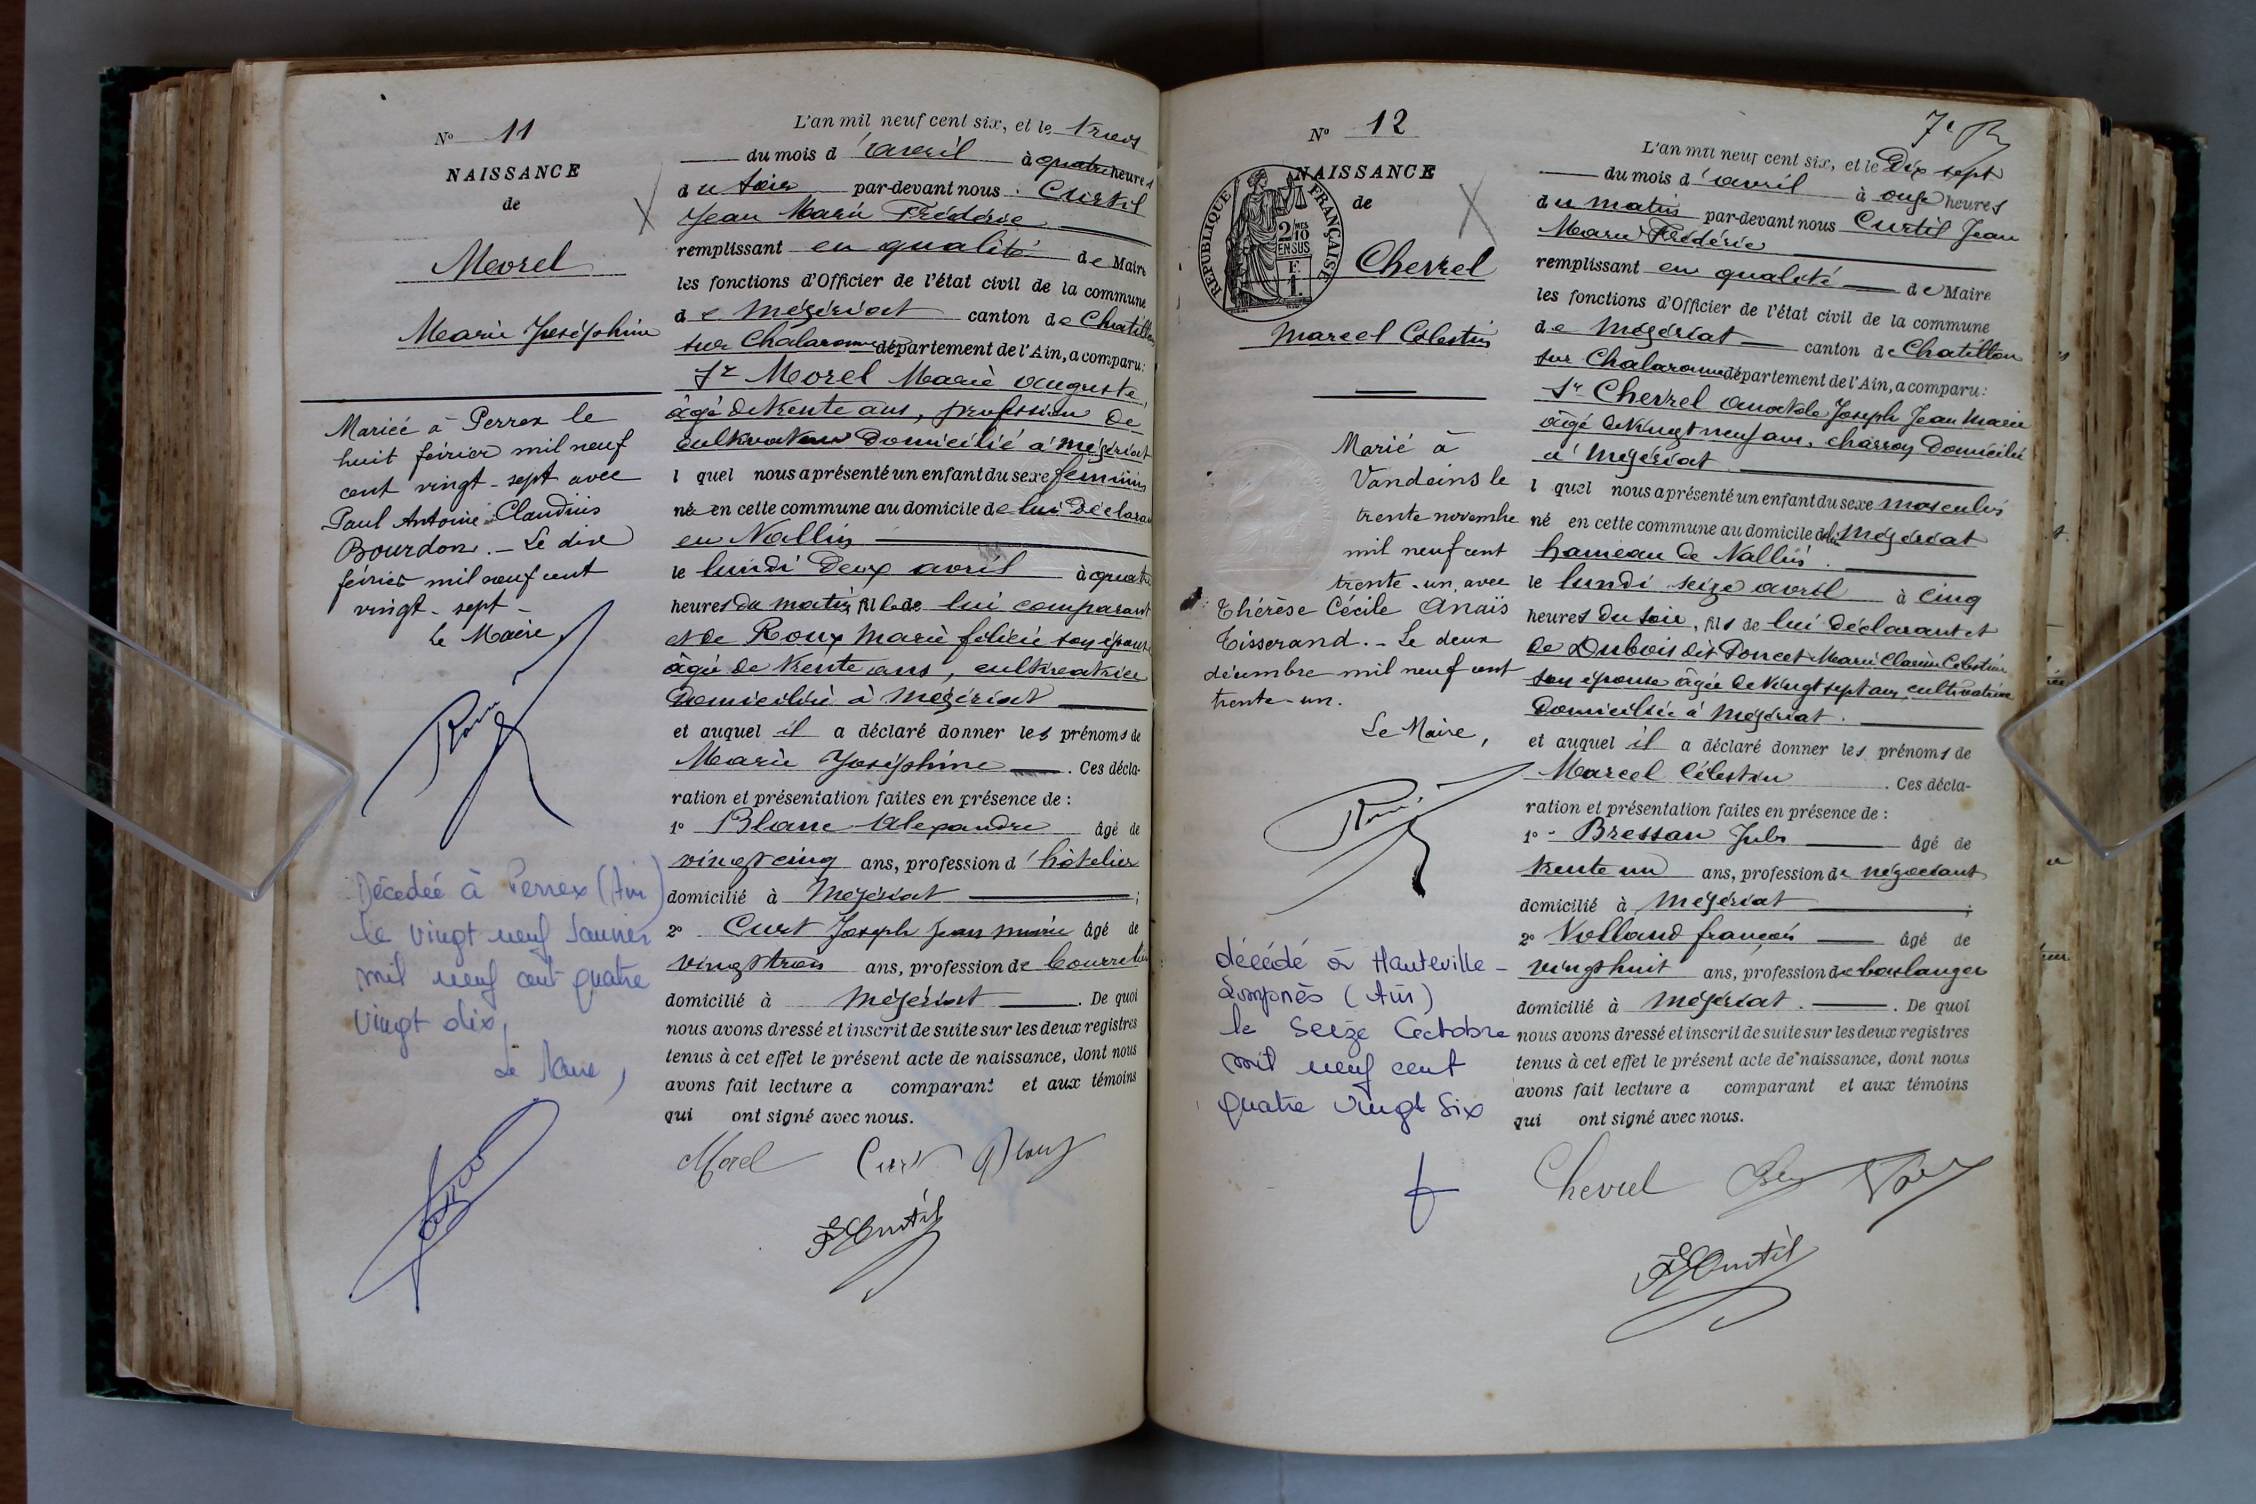 N° 11
NAISSANCE
de
Morel
Marie Joséphine
Mariée à Perrex le
huit février mil neuf
cent vingt-sept avec
Paul Antoine Claudius
Bourdon. - Le dix
février mil neuf cent
vingt-sept -
Le Maire,
Décédée à Perrex (Ain)
le vingt neuf Janvier
mil neuf cent quatre
vingt dix,
Le Maire,
L'an mil neuf cent six, et le trois
du mois d'avril à quatre heures
du soir par-devant nous Curtil
Jean Marie Frédéric
remplissant en qualité de Maire
les fonctions d'Officier de l'état civil de la commune
de Mézériat canton de Chatillon
sur Chalaronne département de l'Ain, a comparu:
Sr Morel Marie Auguste,
âgé de trente ans, profession de
cultivateur domicilié à Mézériat
l quel nous a présenté un enfant du sexe féminin
né en cette commune au domicile de lui déclarant
en Nallin
le lundi deux avril à quatre
heures du matin, fille de lui comparant
et de Roux Marie félicie son épouse
âgée de trente ans, cultivatrice
domiciliée à Mézériat
et auquel il a déclaré donner les prénoms de
Marie Joséphine. Ces décla-
ration et présentation faites en présence de :
1° Blanc Alexandre âgé de
vingt cinq ans, profession d'hôtelier
domicilié à Mézériat ;
2° Curt Joseph Jean Marie âgé de
vingt trois ans, profession de bourrelier
domicilié à Mézériat. De quoi
nous avons dressé et inscrit de suite sur les deux registres
tenus à cet effet le présent acte de naissance, dont nous
avons fait lecture a comparant et aux témoins
qui ont signé avec nous.
Morel Curt Blanc
F Curtil
N° 12
NAISSANCE
de
RÉPUBLIQUE FRANÇAISE
2 MES 10
EN SUS
Chevrel
Marcel Célestin
Marié à
Vandeins le
trente novembre
mil neuf cent
trente-un avec
Thérèse Cécile Anaïs
Tisserand. - Le deux
décembre mil neuf cent
trente-un.
Le Maire,
décédé à Hauteville-
Lompnès (Ain)
le Seize Octobre
mil neuf cent
quatre vingt Six
L'an mil neuf cent six, et le Dix sept
du mois d'avril à onze heures
du matin par-devant nous Curtil Jean
Marie Frédéric
remplissant en qualité de Maire
les fonctions d'Officier de l'état civil de la commune
de Mézériat canton de Chatillon
sur Chalaronne département de l'Ain, a comparu:
Sr Chevrel Anatole Joseph Jean Marie
âgé de vingt neuf ans, charron domicilié
à Mézériat
l quel nous a présenté un enfant du sexe masculin
né en cette commune au domicile de Mézériat
hameau de Nallin.
le lundi seize avril à cinq
heures du soir, fils de lui déclarant et
de Dubois dit Poncet Marie Clarisse Célestine
son épouse âgée de vingt sept ans, cultivatrice
domiciliée à Mézériat.
et auquel il a déclaré donner les prénoms de
Marcel Célestin. Ces décla-
ration et présentation faites en présence de :
1° Bressan Jules âgé de
trente un ans, profession de négociant
domicilié à Mézériat ;
2° Volland françois âgé de
vingt huit ans, profession de boulanger
domicilié à Mézériat. De quoi
nous avons dressé et inscrit de suite sur les deux registres
tenus à cet effet le présent acte de naissance, dont nous
avons fait lecture a comparant et aux témoins
qui ont signé avec nous.
Chevrel
F Curtil